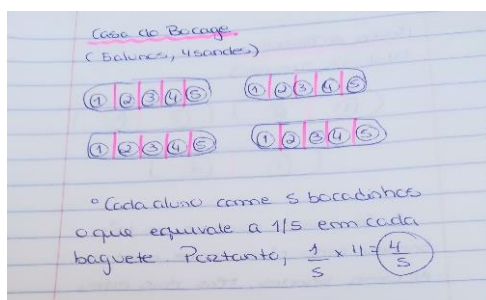 Casa do Bocage.
(5 alunos, 4 sandes)
1 2 3 4 5 1 2 3 4 5
1 2 3 4 5 1 2 3 4 5
° Cada aluno come 5 bocadinhos
o que equivale a 1/5 em cada
baguete Portanto, 1/5 x 4 = 4/5